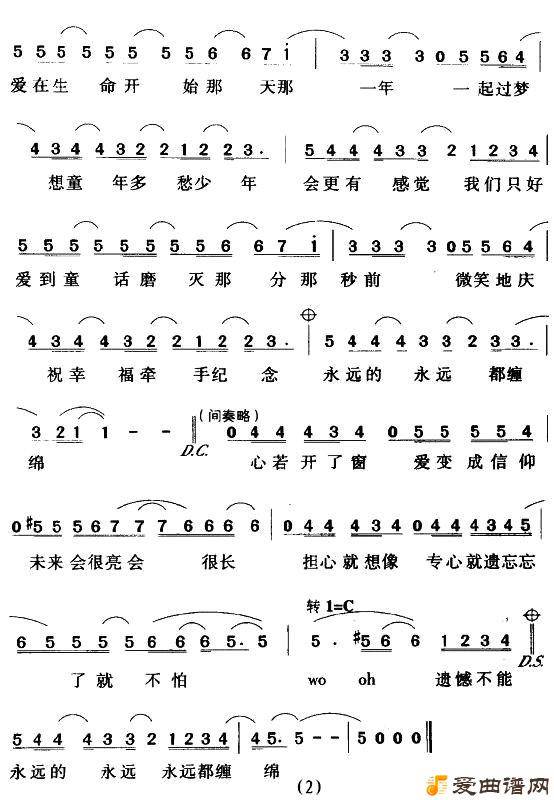 5 5 5 5 5 5 5 5 6 6 7 i | 3 3 3 3 0 5 5 6 4
爱在生 命开 始那 天那 一年 一起过梦
4 3 4 4 3 2 2 1 2 2 3 · | 5 4 4 4 3 3 2 1 2 3 4
想童 年多 愁少 年 会更有 感觉 我们只好
5 5 5 5 5 5 5 5 6 6 7 i | 3 3 3 3 0 5 5 6 4
爱到童 话磨 灭那 分那 秒前 微笑地庆
4 3 4 4 3 2 2 1 2 2 3 · | 5 4 4 4 3 3 2 3 3 ·
祝幸 福牵 手纪 念 永远的 永远 都缠
(间奏略)
3 2 1 1 - - D.C. 0 4 4 4 3 4 0 5 5 5 5 4
绵 心若 开了窗 爱变成信仰
0 #5 5 5 6 7 7 7 6 6 6 | 0 4 4 4 3 4 0 4 4 4 3 4 5
未来会很亮会 很长 担心就想像 专心就遗忘忘
转 1=C
6 5 5 5 5 6 6 6 5 · 5 | 5 · #5 6 6 1 2 3 4 D.S.
了就 不怕 wo oh 遗憾不能
5 4 4 4 3 3 2 1 2 3 4 | 4 5 · 5 - - | 5 0 0 0
永远的 永远 永远都缠 绵
(2)
爱曲谱网